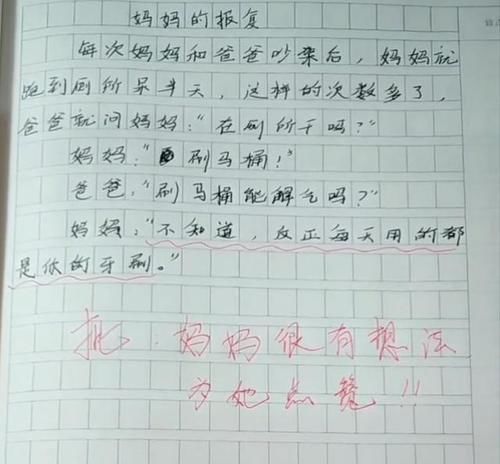 妈妈的报复
每次妈妈和爸爸吵架后，妈妈就
跑到厕所呆半天，这样的次数多了，
爸爸就问妈妈："在厕所干吗？"
妈妈："刷马桶！"
爸爸："刷马桶能解气吗？"
妈妈："不知道，反正每天用的都
是你的牙刷。"
批：妈妈很有想法
为她点赞！！